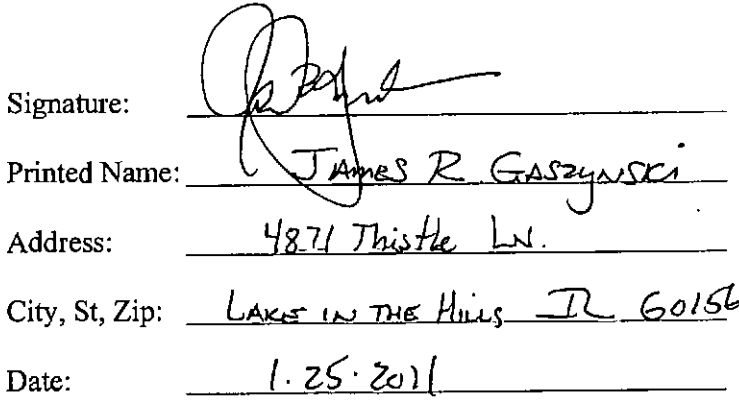 Signature:
Printed Name: JAMES R GASZYNSKI
Address: 4871 Thistle LN.
City, St, Zip: LAKE IN THE HILLS IL 60156
Date: 1.25.2011